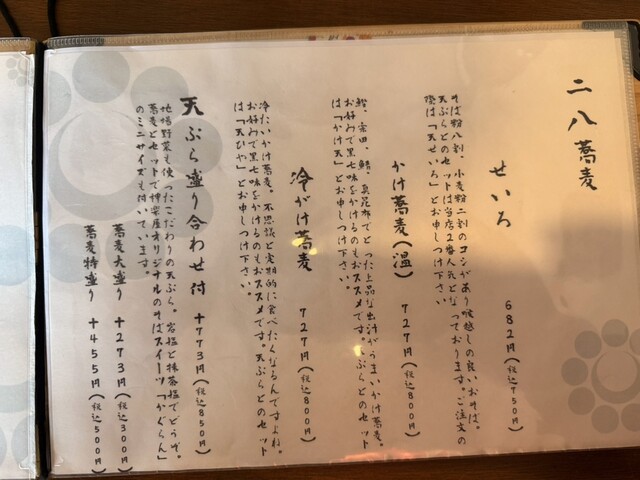 二八蕎麦
せいろ　６８２円（税込７５０円）
そば粉八割、小麦粉二割のコシがあり喉越しの良いおそば。
天ぷらとのセットは当店２番人気となっております。ご注文の
際は「天せいろ」とお申しつけ下さい。
かけ蕎麦（温）　７２７円（税込８００円）
鰹、宗田、鯖、真昆布でとった上品な出汁がうまいかけ蕎麦。
お好みで黒七味をかけるのもおススメです。天ぷらとのセット
は「かけ天」とお申しつけ下さい。
冷がけ蕎麦　７２７円（税込８００円）
冷たいかけ蕎麦。不思議と定期的に食べたくなるんですよね。
お好みで黒七味をかけるのもおススメです。天ぷらとのセット
は「天ひや」とお申しつけ下さい。
天ぷら盛り合わせ付　＋７７３円（税込８５０円）
地場野菜も使ったこだわりの天ぷら。岩塩と抹茶塩でどうぞ。
蕎麦とセットで神楽屋オリジナルのそばスイーツ「かぐらん」
のミニサイズも付いています。
蕎麦大盛り　＋２７３円（税込３００円）
蕎麦特盛り　＋４５５円（税込５００円）